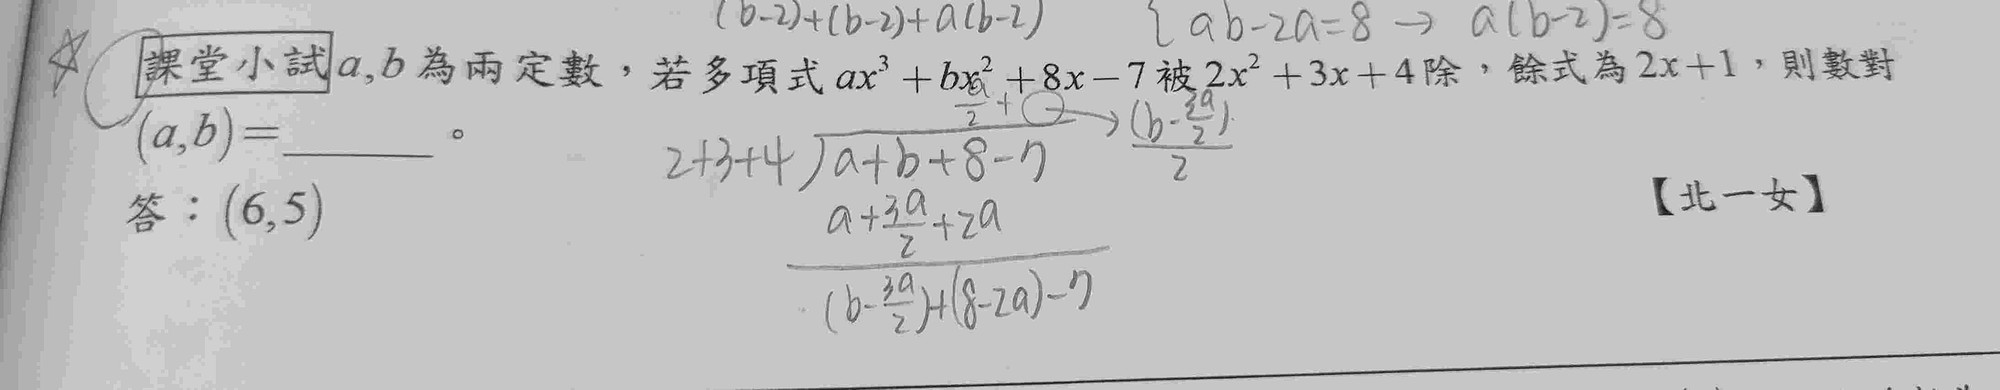 (b-2)+(b-2)+a(b-2) { ab-2a=8 → a(b-2)=8
課堂小試 a,b 為兩定數，若多項式 ax³+bx²+8x-7 被 2x²+3x+4 除，餘式為 2x+1，則數對
(a,b)=______。
a/2 + → (b-3a/2)/2
2+3+4 ) a+b+8-7
答：(6,5)
【北一女】
a+3a/2+2a
(b-3a/2)+(8-2a)-7